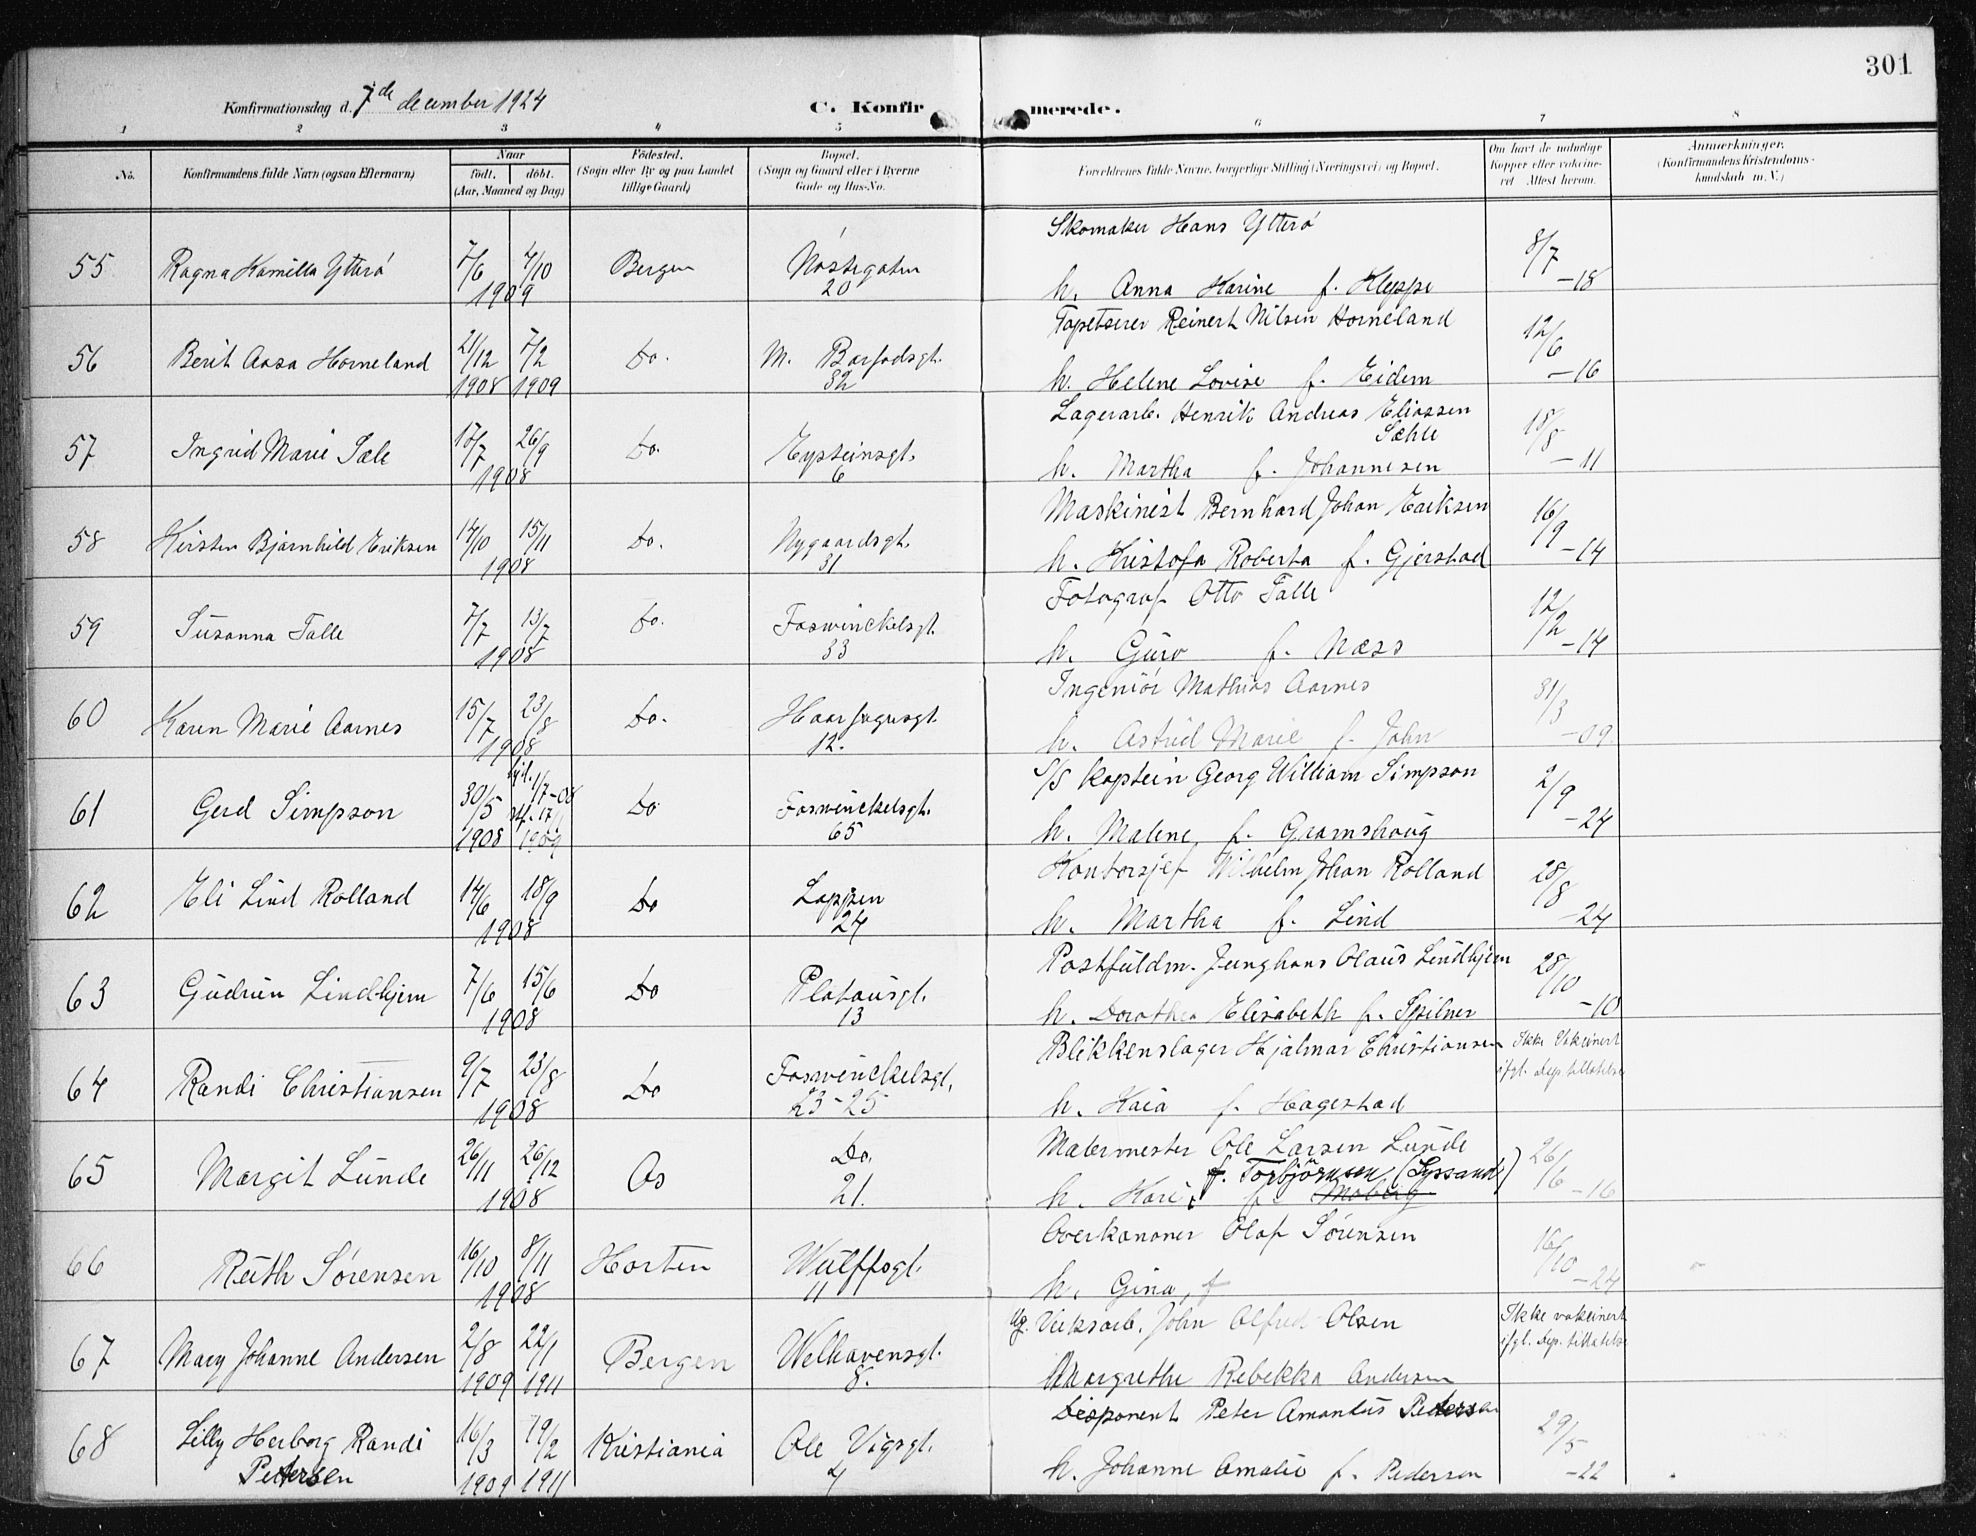 301
Konfirmationsdag d. 7de december 1924
C. Konfirmerede.
1 2 3 4 5 6 7 8
No. Konfirmandens fulde Navn (ogsaa Efternavn) Naar født. døbt. (Aar, Maaned og Dag) Fødested. (Sogn eller By og paa Landet tillige Gaard) Bopæl. (Sogn og Gaard eller i Byerne Gade og Hus-No. Forældrenes fulde Navne, borgerlige Stilling (Næringsvei) og Bopæl. Om havt de naturlige Kopper eller vakcineret Attest herom. Anmærkninger. (Konfirmandens Kristendomskundskab m. V.)
Skomaker Hans Ytterö
55 Ragna Kamilla Ytterö 7/6 4/10 1909 Bergen Nöstegaten 20 8/7 -18
h. Anna Karine f. Kleppe
Tapetserer Reinert Nilsen Horneland
56 Berit Aasa Horneland 21/12 1908 7/2 1909 Do. M. Barfodsgt. 32 12/6 -16
h. Helene Lovise f. Eidem
Lagerarb. Henrik Andreas Eliassen
Sæhle
57 Ingrid Marie Sæle 17/7 26/9 1908 Do. Eysteinsgt. 6 18/8 -11
h. Martha f. Johannesen
Maskinist Bernhard Johan Eriksen
58 Kirsten Bjarnhild Eriksen 14/10 15/11 1908 Do. Nygaardsgt. 31 16/9 -14
h. Kristofa Roberta f. Gjerstad
Fotograf Otto Talle
59 Susanna Talle 7/7 13/7 1908 Do. Foswinckelsgt. 33 12/2 -14
h. Guro f. Næss
Ingeniör Mathias Aarnes
60 Karen Marie Aarnes 15/7 23/8 1908 Do. Haarfagresgt. 12. 31/3 -09
h. Astrid Marie f. John
S/S Kaptein Georg William Simpson
61 Gerd Simpson 30/5 1908 hjd. 1/7-08 stf. 17/1 1909 Do Foswinckelsgt. 65 2/9 -24
h. Malene f. Gramshaug
Kontorsjef Wilhelm Johan Rolland
62 Eli Lind Rolland 14/6 18/9 1908 Do Lappen 24 28/8 -24
h. Martha f. Lind
Postfuldm. Junghans Olaus Lindhjem
63 Gudrun Lindhjem 7/6 15/6 1908 Do Platousgt. 13 28/10 -10
h. Dorothea Elisabeth f. Spilner
Blikkenslager Hjalmar Christiansen Ikke Vakcinert
64 Randi Christiansen 9/7 23/8 1908 Do Foswinckelsgt. 23-25 ifgl. dep. tillatelse
h. Kaia f. Hagestad
Malermester Ole Larsen Lunde
65 Margit Lunde 26/11 26/12 1908 Os Do. 21. 26/6 -16
f. Torbjörnsen (Lyssand)
h. Kari, f. Moberg
Overkanoner Olaf Sørensen
66 Ruth Sørensen 16/10 8/11 1908 Horten Wulffsgt. 11 16/10 -24
h. Gina, f
Ug. Verksarb. John Alfred Olsen Ikke vakcinert
67 Mary Johanne Andersen 2/8 1909 22/1 1911 Bergen Welhavensgt. 8. ifgl. dep. tillatelse
Margrethe Rebekka Andersen
Disponent Peter Amandus Pedersen
68 Lilly Herborg Randi Petersen 16/3 1909 19/2 1911 Kristiania Ole Vigsgt. 4 29/5 -22
h. Johanne Amalie f. Pedersen